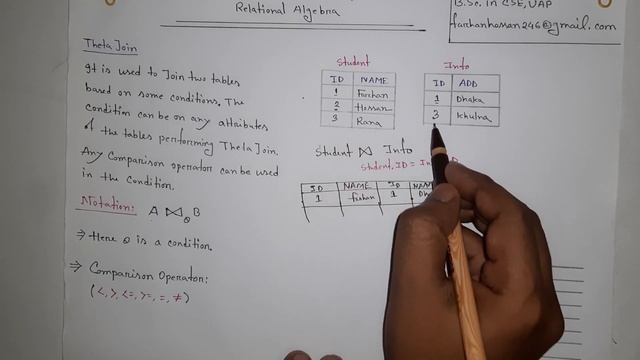 Relational Algebra
B.Sc. in CSE, UAP
farhanhossan246@gmail.com
Theta Join
It is used to Join two tables
based on some conditions. The
condition can be on any attributes
of the tables performing Theta Join.
Any Comparison operators can be used
in the Condition.
Notation: A ⋈θ B
⇒ Here θ is a condition.
⇒ Comparison Operator:
(<, >, <=, >=, =, ≠)
Student
ID NAME
1 Farhan
2 Hossan
3 Rana
Info
ID ADD
1 Dhaka
3 Khulna
Student ⋈ Info
Student.ID =
ID NAME ID
1 Farhan 1